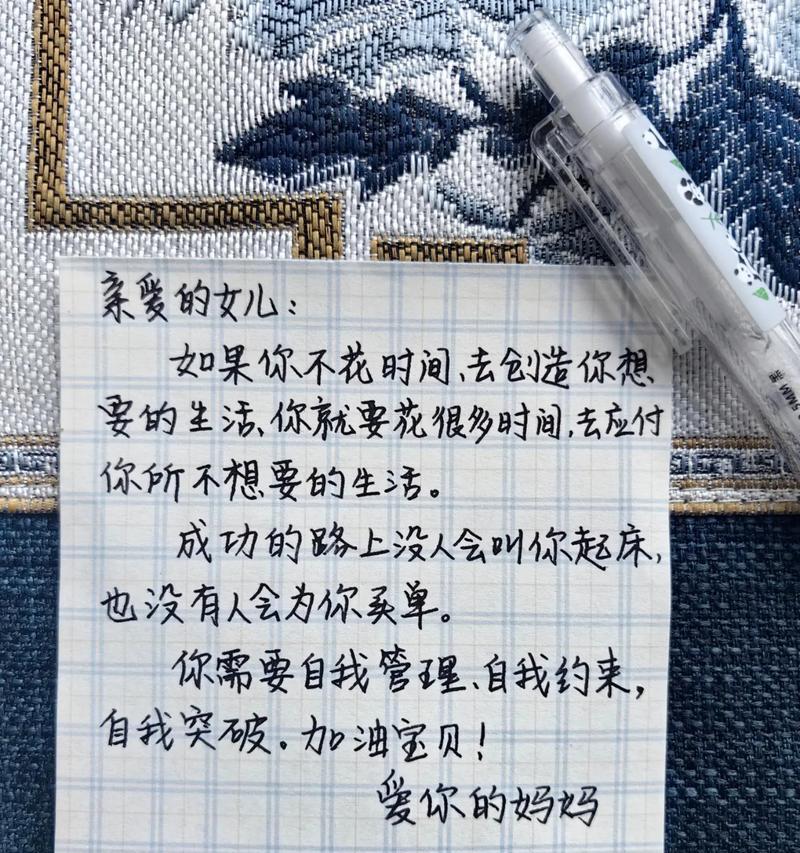 亲爱的女儿：
如果你不花时间、去创造你想
要的生活、你就要花很多时间、去应付
你所不想要的生活。
成功的路上没人会叫你起床，
也没有人会为你买单。
你需要自我管理、自我约束，
自我突破。加油宝贝！
爱你的妈妈